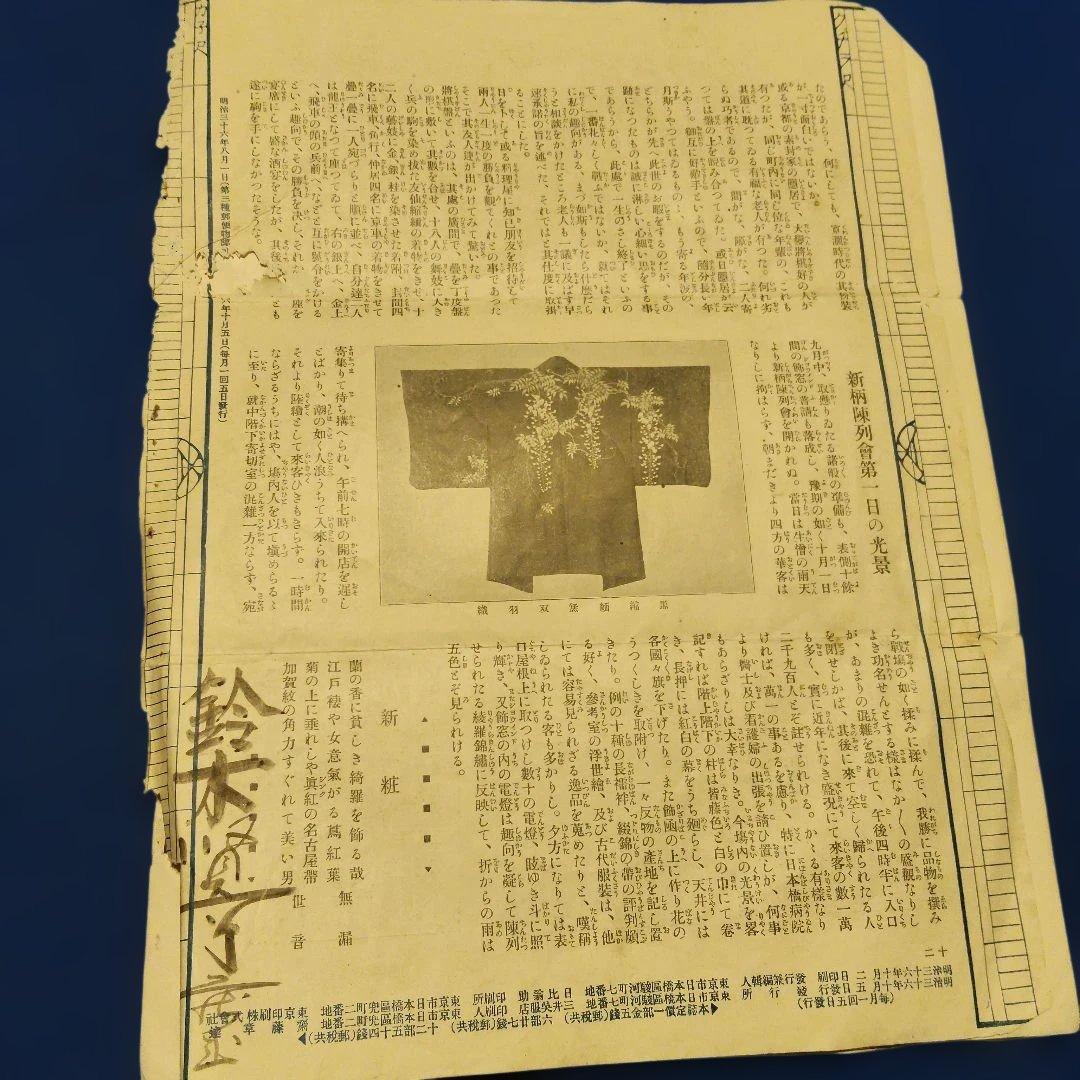 たのであらう、何にしても、寛濶時代の其扮裝
が、一寸面白いではないか。
或る京都の素封家の隱居で、大變將棋好の人が
有つたが、同じ町内に同じ位な年輩の、これも
其道に耽つてゐる有福な老人が有つた。何れ劣
らぬ巧者であるので、間がな、隙がな、二人寄
つては盤の上を睨み合つてゐた。或日隱居が云
ふやう。御互に好敵手といふので、隨分長い年
月斯うやつてはゐるものゝ、もう寄る年波の、
どちらかが先へ此世のお暇をするのだが、その
跡になつたものは誠に淋しい心細い思をする事
であらうから、此處で一生のさし終了といふの
で、一番花々しく戰ふではないか、就てはそれ
に私の趣向がある、まづ如斯もしたら什麼だら
うと相談をかけたところ老人も一議に及ばず早
速承諾の旨を述べた、それではと其仕度に取掛
ることにした。
日をトして、或る料理屋に知已朋友を招待して
兩人一生一度の勝負を觀てくれとの事であった
そこで其友人達が出かけてみて驚いた。
將棋盤といふのは、其處の廣間で、疊を丁度盤
の形に敷いて其數を合せ、十八人の舞妓に大き
く兵の駒を染め拔た友仙縮緬の着物をきせ、十
二人の藝妓に金、銀、桂を染させた着附、幇間四
名に飛車、角行、仲居四名に京車の着物をきせて
疊一疊に一人宛づらりと順に並べ、自分達二人
は龍王となつて座つてゐて、右の銀上へ、金上
へ、飛車の頭の兵前へ、などと互に號令をかける
といふ趣向で、その勝負を決し、それか 座を
宴席にして盛な酒宴をしたが、其後は とも
遂に駒を手にしなかつたそうな。
明治三十六年八月一日(第三種郵便物認
六年十月五日(毎月一回五日發行)
新柄陳列會第一日の光景
九月中、取應りゐたる諸般の準備も、表側十餘
間の飾窓の普請も落成し、豫期の如く十月一日
より新柄陳列會を開かれぬ。當日は生憎の雨天
なりしに拘はらず、朝まだきより四方の華客は
黑縮緬無双羽織
寄集りて待ち搆へられ、午前七時の開店を遲し
とばかり、潮の如く人浪うちて入來られたり。
それより陸續として來客ひきもきらず。一時間
ならざるうちにはや、塲內人を以て塡めらるゝ
に至り、就中階下寄切室の混雜一方ならず、宛
ら戰塲の如く揉みに揉んで、我勝に品物を撰み
よき功名せんとする樣はなか〱の盛觀なりし
が、あまりの混雜を恐れて、午後四時半に入口
を閉せしかば、其後に來て空しく歸られたる人
も多く、實に近年になき盛况にて來客の數一萬
二千九百人とぞ註せられける。かゝる有樣なり
ければ、萬一の事あるを慮り、特に日本橋病院
より醫士及び看護婦の出張を請ひ置しが、何事
もあらざりしは大幸なりき。今塲內の光景を畧
記すれば階上階下の柱は皆藤色と白の巾にて卷
き、長押には紅白の幕をうち廻らし、天井には
各國々旗を下げたり。また飾函の上に作り花の
うつくしきを取附け、一々反物の產地を記し置
きたり。例の十種の長襦袢、綴錦の帶の評判頗
る好く、參考室の浮世繪、及び古代服裝は、他
にては容易見られざる逸品を蒐めたりと、嘆稱
しゐられたる客も多かりし。夕方になりては表
口屋根上に取つけし數十の電燈、眩ゆき斗に照
り輝き、又飾窓の內の電燈は趣向を凝して陳列
せられたる綾羅錦繡に反映して、折からの雨は
五色とぞ見られける。
新粧
蘭の香に貧しき綺羅を飾る哉 無漏
江戶褄や女意氣がる蔦紅葉
菊の上に垂れしや眞紅の名古屋帶
加賀紋の角力すぐれて美い男 世音
鈴木
十二
明治三十六年十月二日印刷
明治三十六年十月五日發行
(毎月一回五日發行)
發行兼編輯人
東京市日本橋區駿河町七番地
印刷所